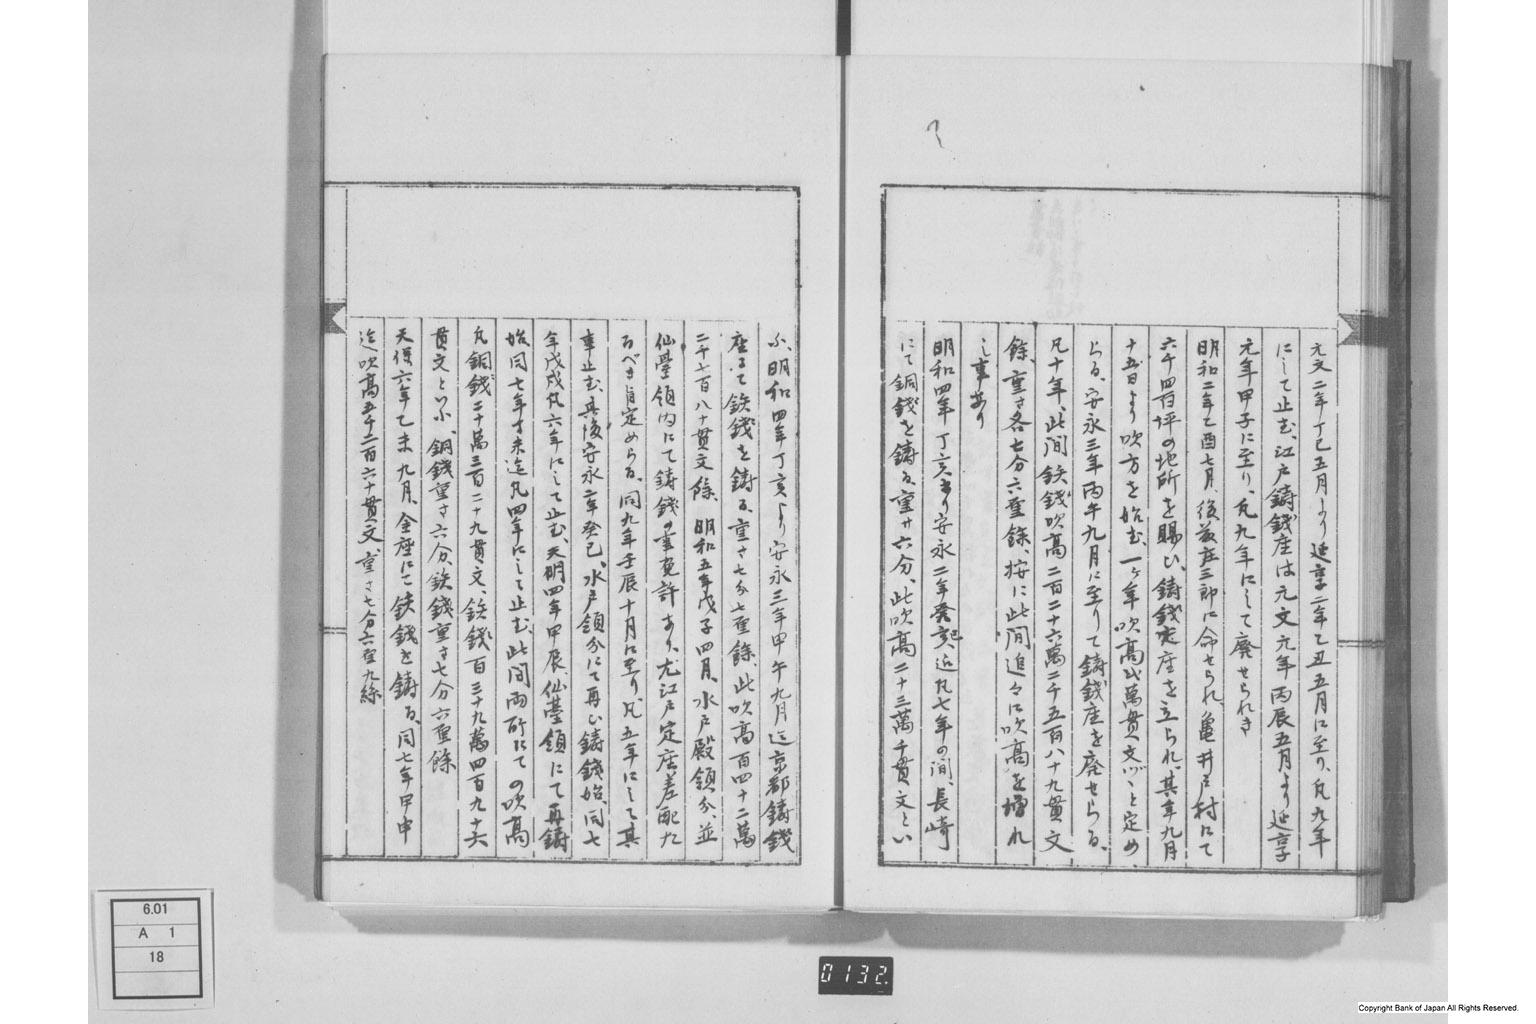 元文二年丁巳五月より延享二年乙丑五月に至り、凡九年
にして止む、江戸鋳銭座は元文元年丙辰五月より延享
元年甲子に至り、凡九年にして廃せられき
明和二年乙酉七月、後藤庄三郎に命せられ、亀井戸村にて
六千四百坪の地所を賜ひ、鋳銭定座を立られ、其年九月
十五日より吹方を始む、一ヶ年吹高弐萬貫文づゝと定め
らる、安永三年丙午九月に至りて鋳銭座を廃せらる、
凡十年、此間鉄銭吹高二百二十六萬二千五百八十九貫文
餘、重さ各七分六厘餘、按に此間追々に吹高を増れ
し事あり
明和四年丁亥より安永二年癸巳迄凡七年の間、長崎
にて銅銭を鋳る、重サ六分、此吹高二十三萬千貫文とい
ふ、明和四年丁亥より安永三年甲午九月迄京都鋳銭
座にて鉄銭を鋳る、重さ七分七厘餘、此吹高百四十二萬
二千七百八十貫文餘、明和五年戊子四月、水戸殿領分、並
仙臺領内にて鋳銭の事免許あり、尤江戸定座差配た
るべき旨定めらる、同九年壬辰十月に至り、凡五年にして其
事止む、其後安永二年癸巳、水戸領分にて再ひ鋳銭始、同七
年戊戌凡六年にして止む、天明四年甲辰、仙臺領にて再鋳
始、同七年丁未迄凡四年にして止む、此間両所にての吹高
凡銅銭二十萬三百二十九貫文、鉄銭百三十九萬四百九十六
貫文といふ、銅銭重さ六分、鉄銭重さ七分六厘餘
天保六年乙未九月、金座にて鉄銭を鋳る、同七年甲申
迄吹高五千二百六十貫文、重さ七分六厘九絲
6.01
A 1
18
0132.
Copyright Bank of Japan All Rights Reserved.